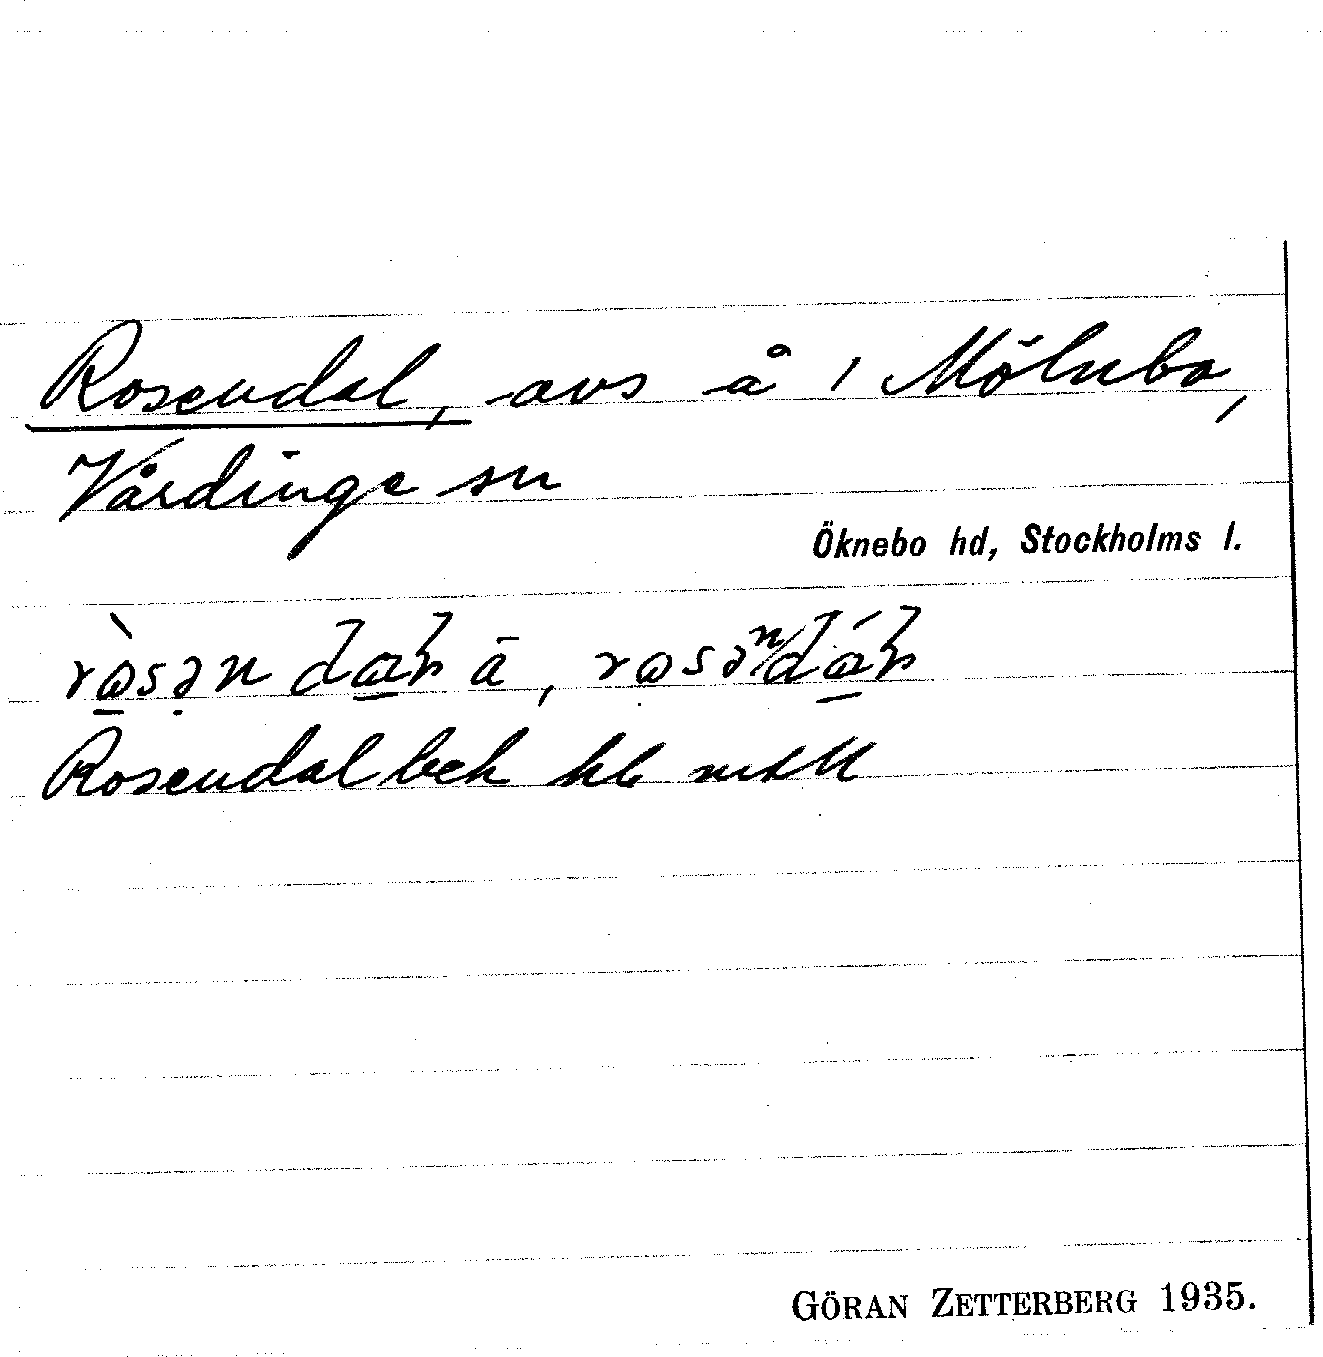 Rosendal, avs å i Mölnbo,
Vårdinge sn
Öknebo hd, Stockholms l.
Rosendal bek
GÖRAN ZETTERBERG 1935.